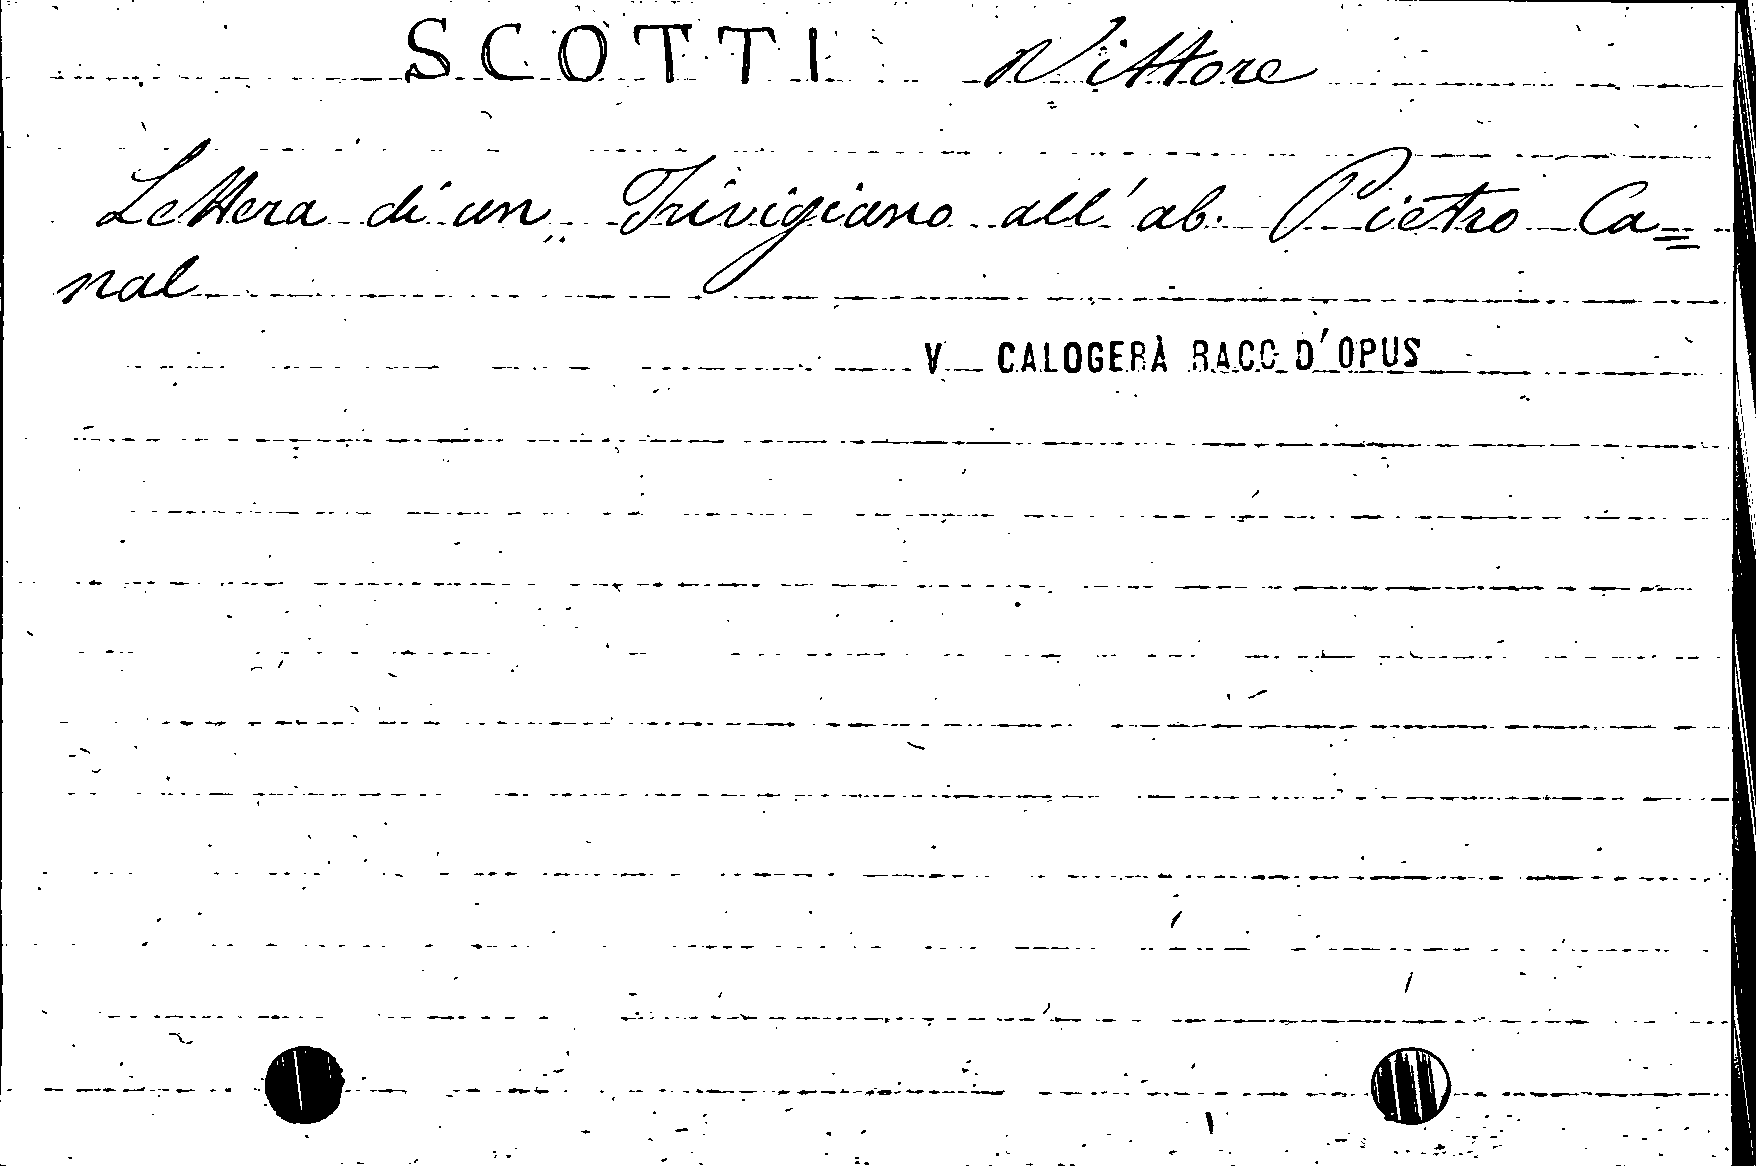 SCOTTI Vittore
Lettera di un Trivigiano all'ab. Pietro Ca=
nal
V CALOGERÀ RACC D'OPUS